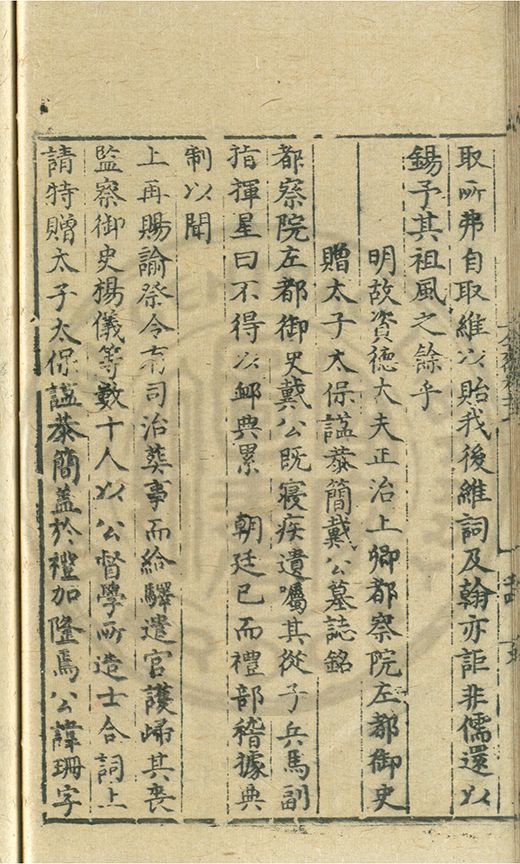 取所弗自取維以貽我後維詞及翰亦詎非儒還以
錫予其祖風之餘乎
明故資德大夫正治上卿都察院左都御史
贈太子太保諡恭簡戴公墓誌銘
都察院左都御史戴公既寢疾遺囑其從子兵馬副
指揮星曰不得以䘏典累　朝廷已而禮部稽據典
制以聞
上再賜諭祭令有司治葬事而給驛遣官護歸其喪
監察御史楊儀等數十人以公督學所造士合詞上
請特贈太子太保諡恭簡盖於禮加隆焉公諱珊字